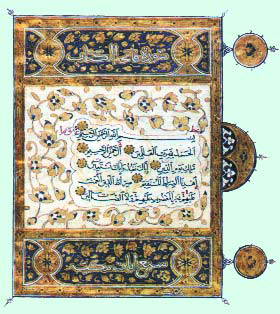 سورة فاتحة الكتاب
بسم الله الرحمن الرحيم
الحمد لله رب العالمين الرحمن الرحيم
ملك يوم الدين اياك نعبد واياك نستعين
اهدنا الصراط المستقيم صراط الذين انعمت
عليهم غير المغضوب عليهم ولا الضالين
سبع ايات مكية